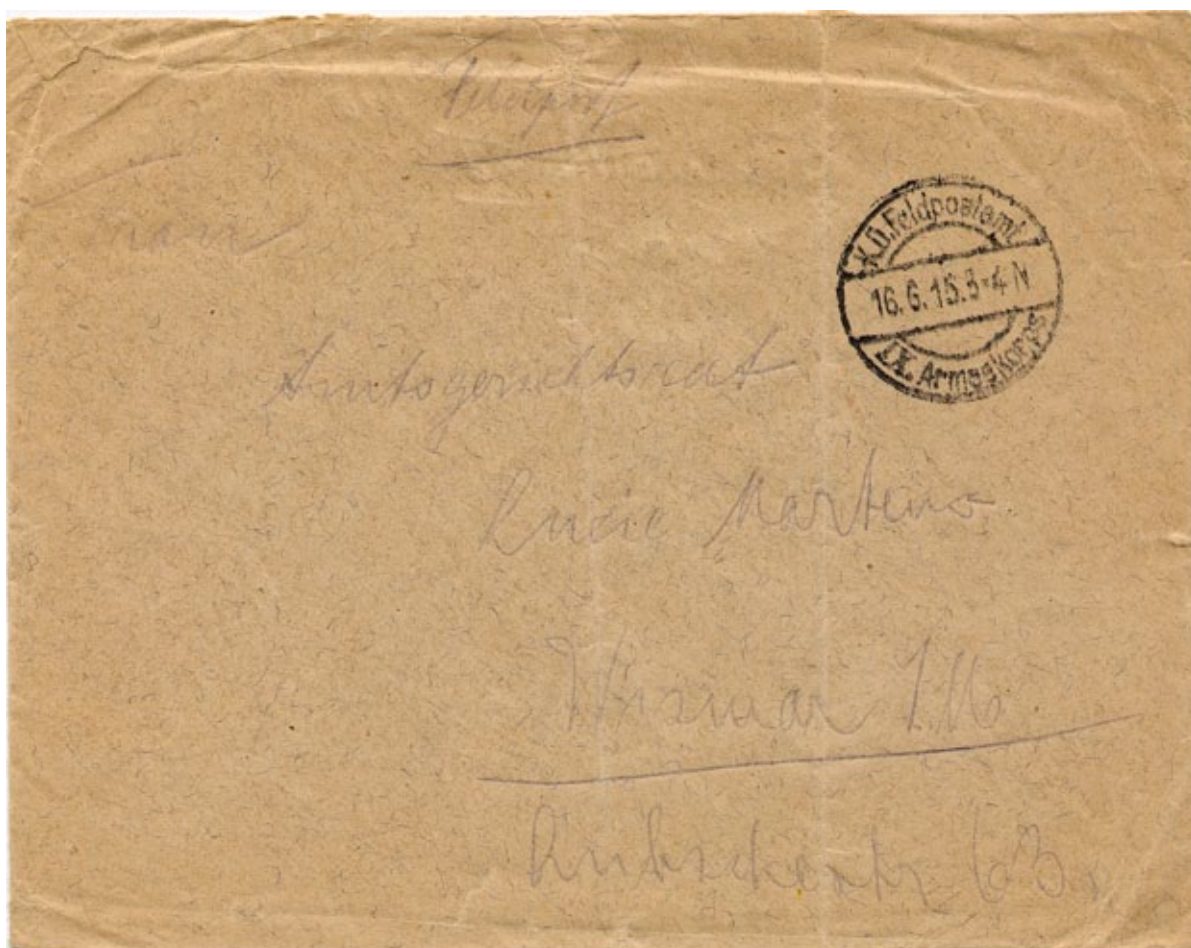 Feldpost
K.D.Feldpostamt
16.6.15.3-4 N
IX. Armeekorps
Frau
Amtsgerichtsrat
Lucie Martens
Wismar i. M
63